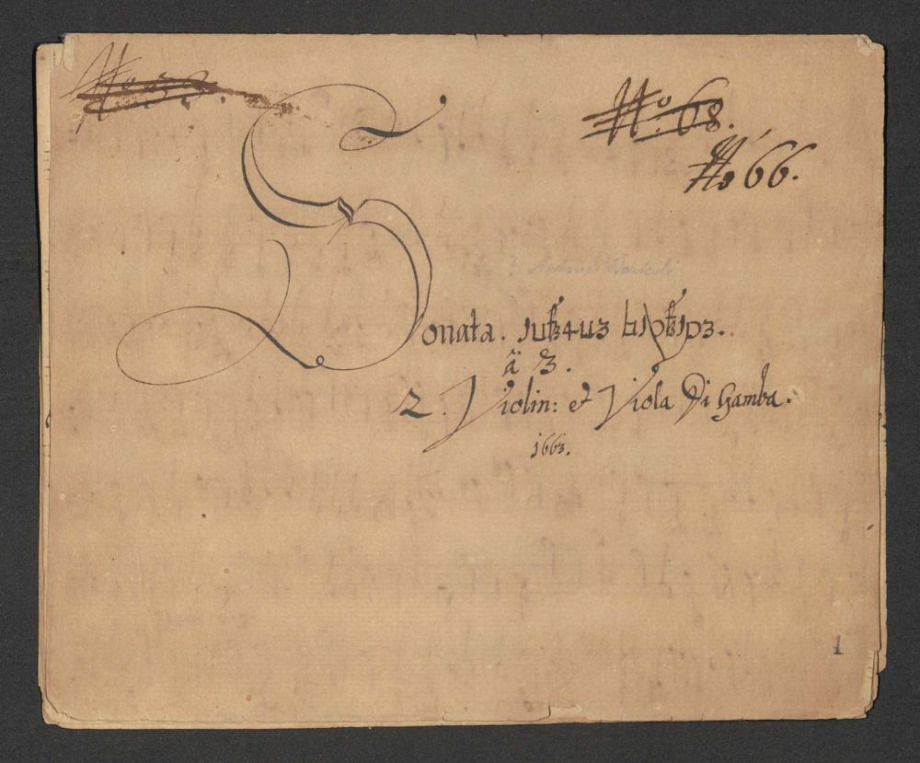 No. 68.
No 66.
Antonio Bertali
Sonata.
â 3.
2. Violin: et Viola Di Gamba.
1663.
1